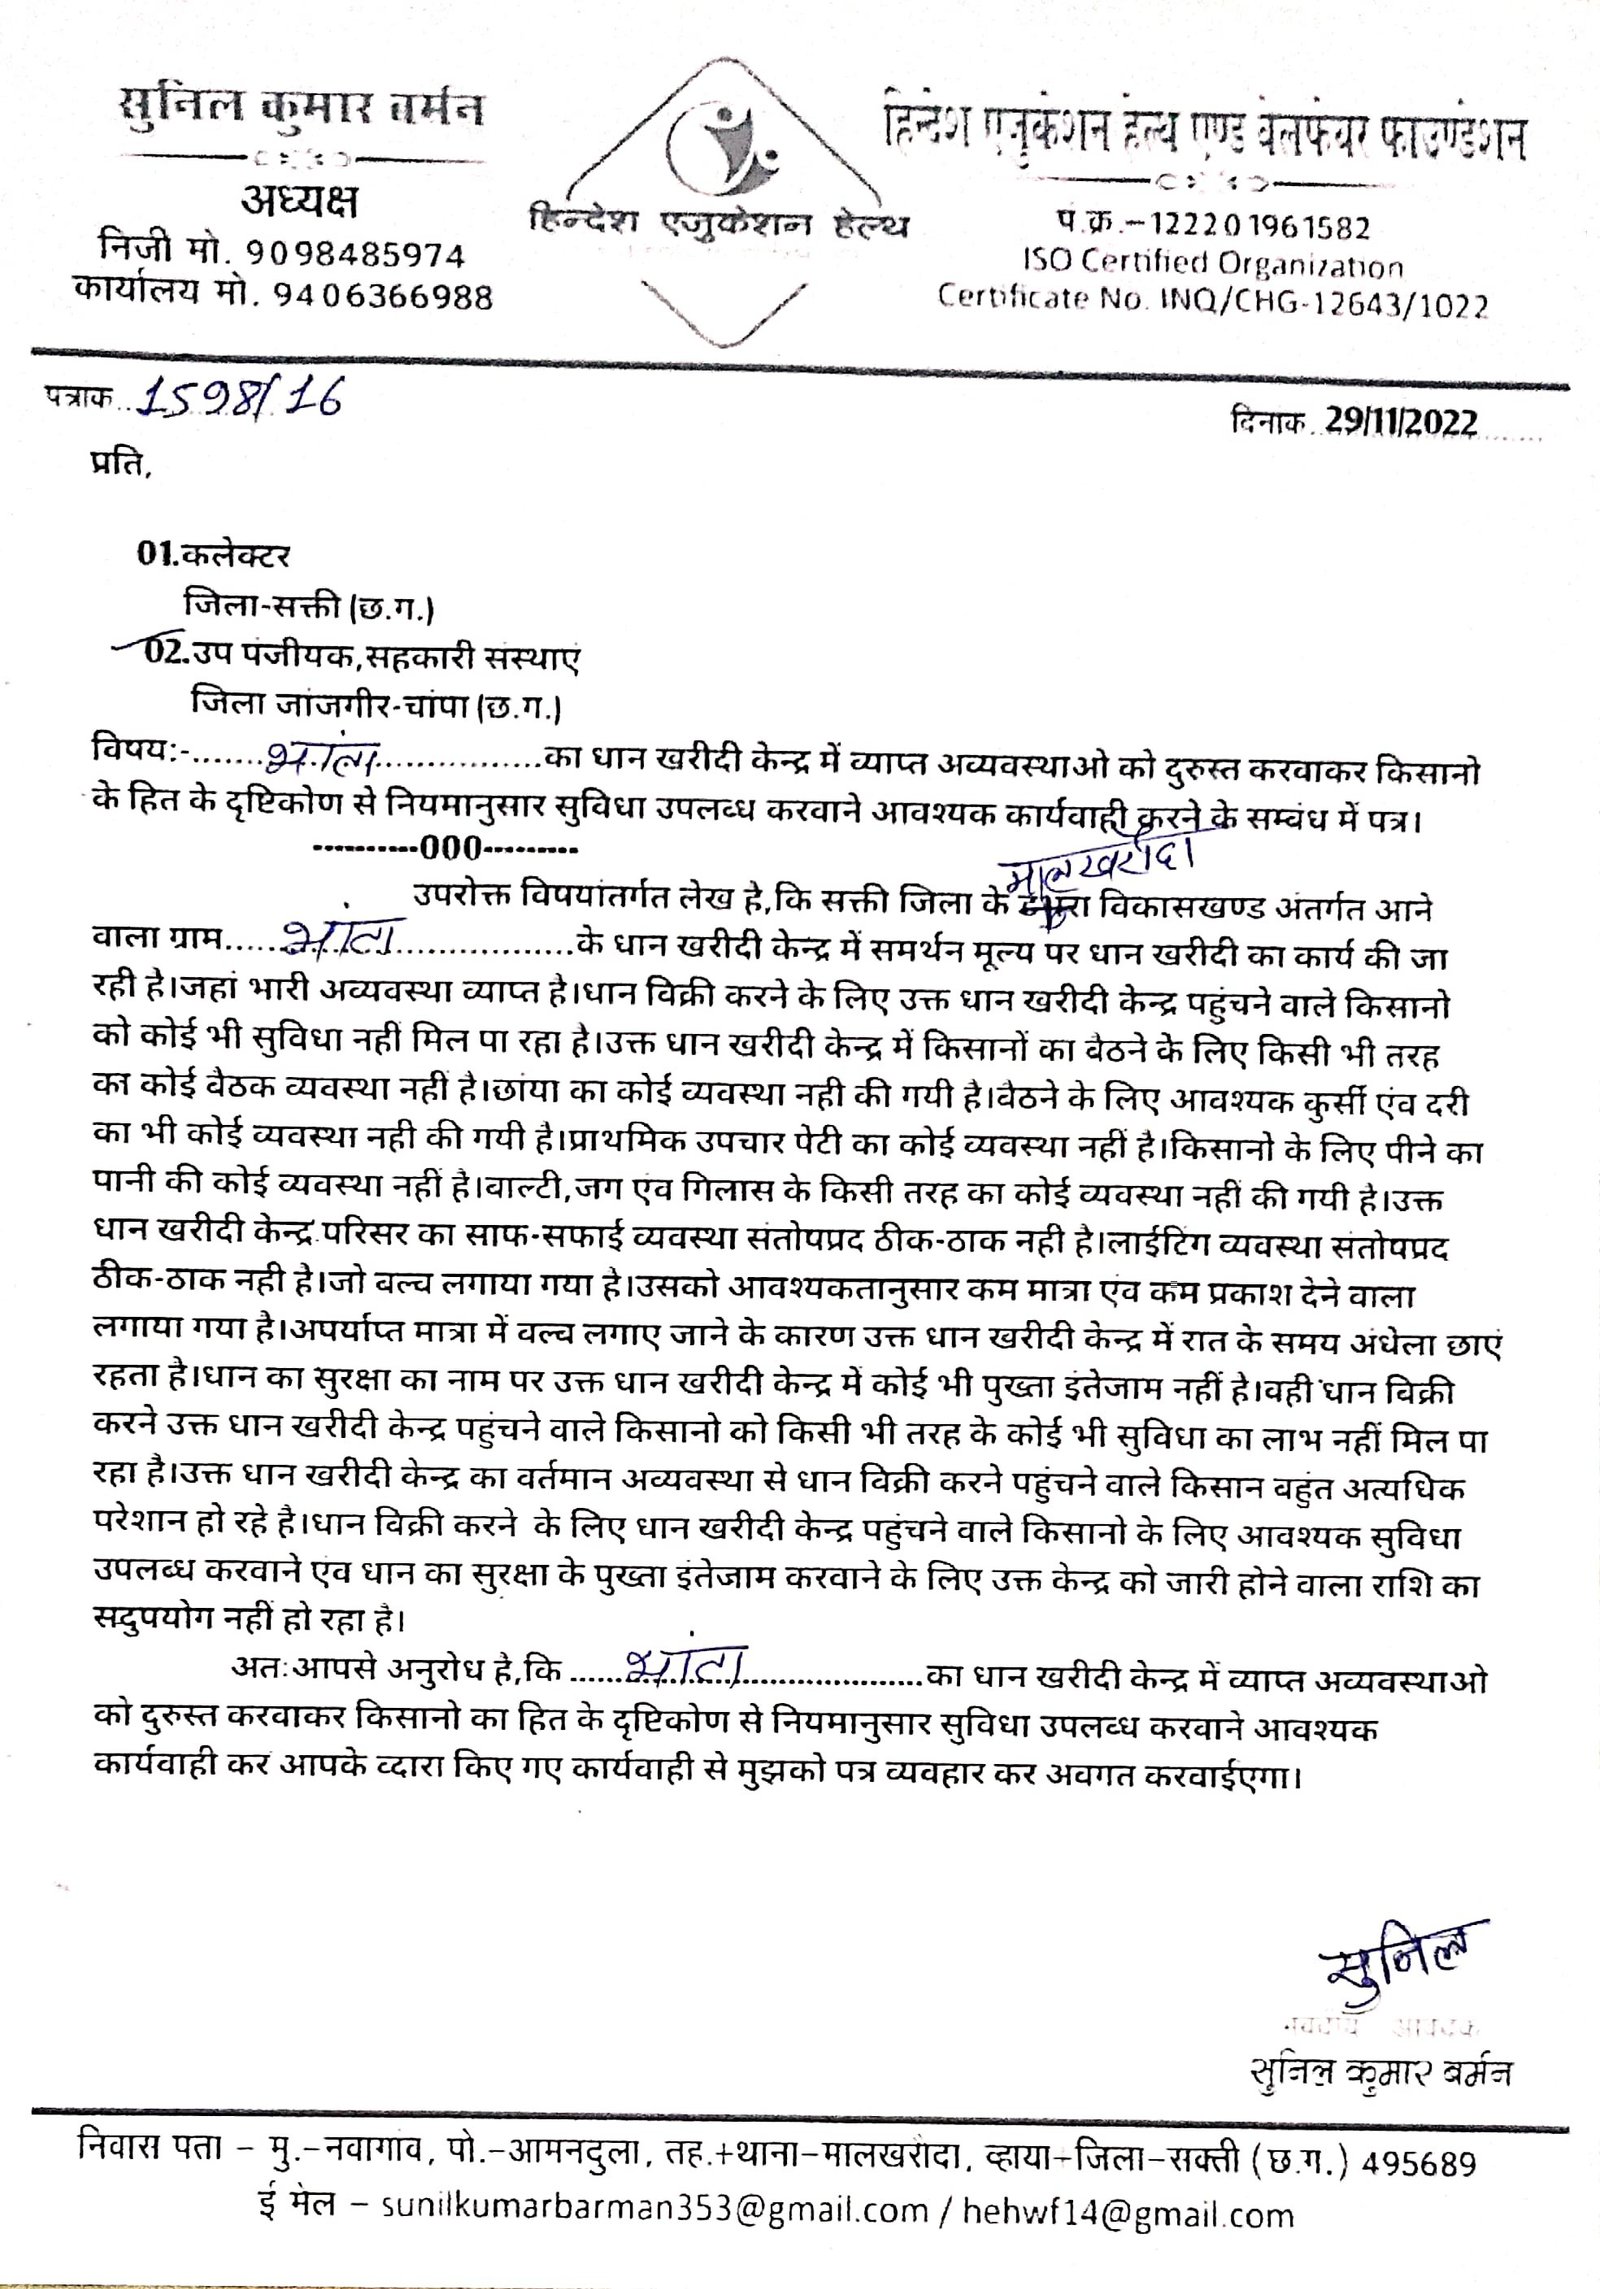 सुनिल कुमार बर्मन
अध्यक्ष
निजी मो. 9098485974
कार्यालय मो. 9406366988
हिन्देश एजुकेशन हेल्थ
हिन्देश एजुकेशन हेल्थ एण्ड वेलफेयर फाउण्डेशन
पं.क्र.-122201961582
ISO Certified Organization
Certificate No. INQ/CHG-12643/1022
पत्रांक..1598/16
दिनांक..29/11/2022
प्रति,
01.कलेक्टर
जिला-सक्ती (छ.ग.)
02.उप पंजीयक,सहकारी संस्थाएं
जिला जांजगीर-चांपा (छ.ग.)
विषय:-.......भांता.................का धान खरीदी केन्द्र में व्याप्त अव्यवस्थाओ को दुरुस्त करवाकर किसानो
के हित के दृष्टिकोण से नियमानुसार सुविधा उपलब्ध करवाने आवश्यक कार्यवाही करने के सम्बंध में पत्र।
----------000---------
मालखरौदा
उपरोक्त विषयांतर्गत लेख है,कि सक्ती जिला के विकासखण्ड अंतर्गत आने
वाला ग्राम.......भांता...................के धान खरीदी केन्द्र में समर्थन मूल्य पर धान खरीदी का कार्य की जा
रही है।जहां भारी अव्यवस्था व्याप्त है।धान विक्री करने के लिए उक्त धान खरीदी केन्द्र पहुंचने वाले किसानो
को कोई भी सुविधा नहीं मिल पा रहा है।उक्त धान खरीदी केन्द्र में किसानों का बैठने के लिए किसी भी तरह
का कोई बैठक व्यवस्था नहीं है।छांया का कोई व्यवस्था नही की गयी है।बैठने के लिए आवश्यक कुर्सी एंव दरी
का भी कोई व्यवस्था नही की गयी है।प्राथमिक उपचार पेटी का कोई व्यवस्था नहीं है।किसानो के लिए पीने का
पानी की कोई व्यवस्था नहीं है।वाल्टी,जग एंव गिलास के किसी तरह का कोई व्यवस्था नहीं की गयी है।उक्त
धान खरीदी केन्द्र परिसर का साफ-सफाई व्यवस्था संतोषप्रद ठीक-ठाक नही है।लाईटिंग व्यवस्था संतोषप्रद
ठीक-ठाक नही है।जो वल्व लगाया गया है।उसको आवश्यकतानुसार कम मात्रा एंव कम प्रकाश देने वाला
लगाया गया है।अपर्याप्त मात्रा में वल्व लगाए जाने के कारण उक्त धान खरीदी केन्द्र में रात के समय अंधेला छाएं
रहता है।धान का सुरक्षा का नाम पर उक्त धान खरीदी केन्द्र में कोई भी पुख्ता इंतेजाम नहीं है।वही धान विक्री
करने उक्त धान खरीदी केन्द्र पहुंचने वाले किसानो को किसी भी तरह के कोई भी सुविधा का लाभ नहीं मिल पा
रहा है।उक्त धान खरीदी केन्द्र का वर्तमान अव्यवस्था से धान विक्री करने पहुंचने वाले किसान वहुंत अत्यधिक
परेशान हो रहे है।धान विक्री करने के लिए धान खरीदी केन्द्र पहुंचने वाले किसानो के लिए आवश्यक सुविधा
उपलब्ध करवाने एंव धान का सुरक्षा के पुख्ता इंतेजाम करवाने के लिए उक्त केन्द्र को जारी होने वाला राशि का
सदुपयोग नहीं हो रहा है।
अतःआपसे अनुरोध है,कि ......भांता....................का धान खरीदी केन्द्र में व्याप्त अव्यवस्थाओ
को दुरुस्त करवाकर किसानो का हित के दृष्टिकोण से नियमानुसार सुविधा उपलब्ध करवाने आवश्यक
कार्यवाही कर आपके व्दारा किए गए कार्यवाही से मुझको पत्र व्यवहार कर अवगत करवाईएगा।
सुनिल
सुनिल कुमार बर्मन
निवास पता – मु.–नवागांव, पो.–आमनदुला, तह.+थाना–मालखरौदा, व्हाया+जिला–सक्ती (छ.ग.) 495689
ई मेल – sunilkumarbarman353@gmail.com / hehwf14@gmail.com